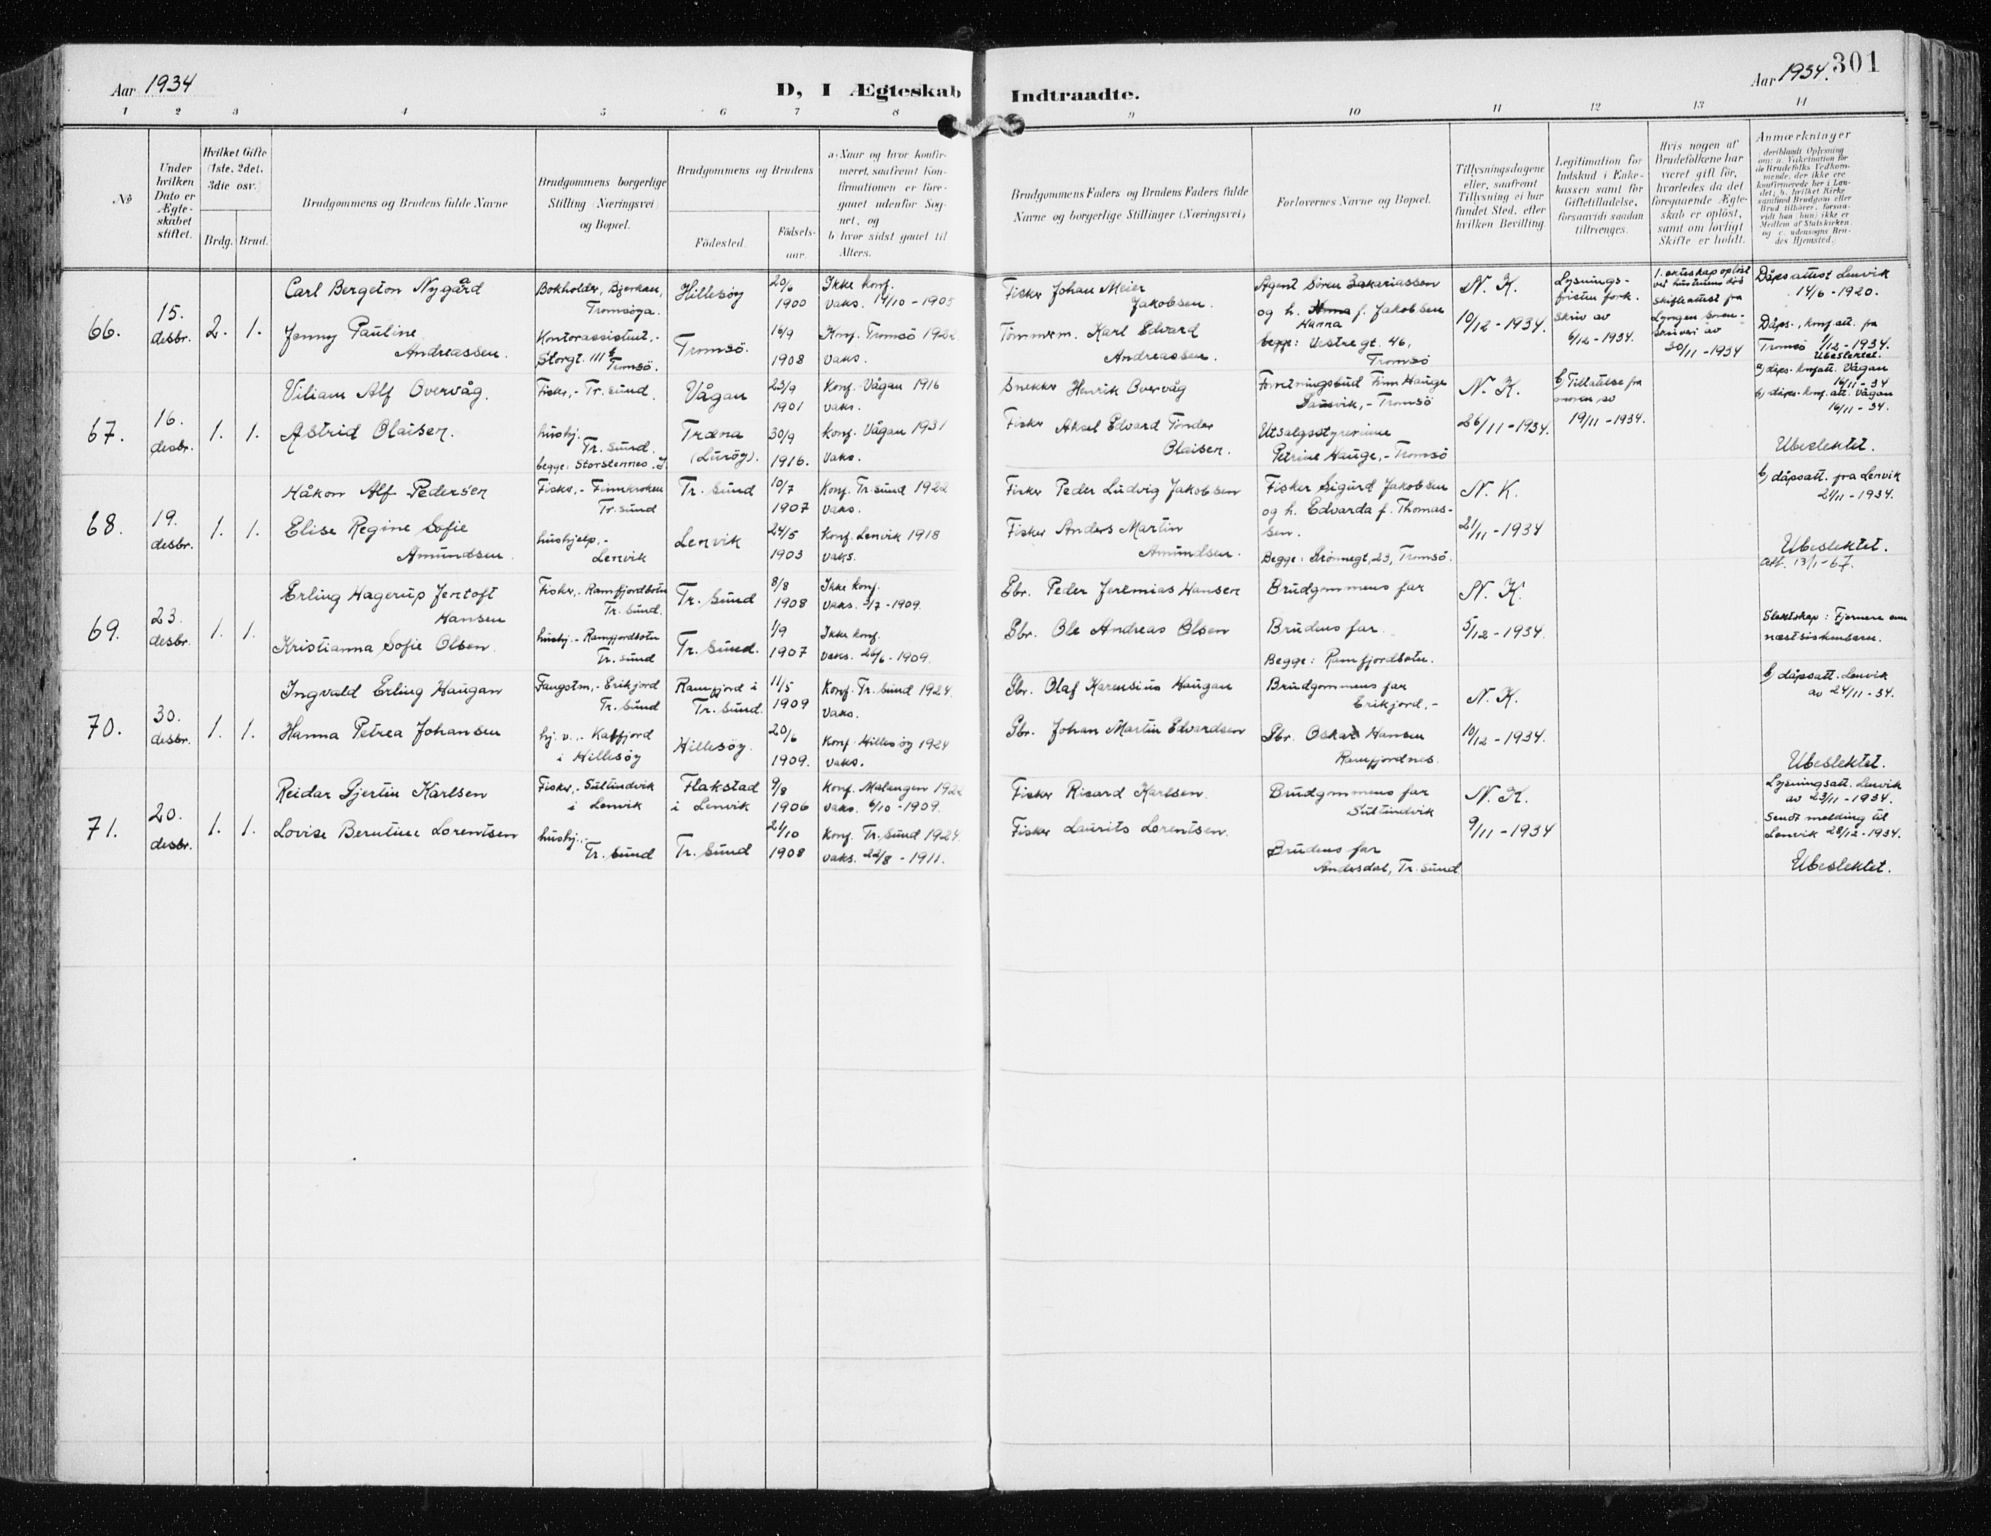 Aar 1934
D, I Ægteskab Indtraadte.
Aar 1934. 301
1 2 3 4 5 6 7 8 9 10 11 12 13 14
No
Under hvilken Dato er Ægteskabet stiftet.
Hvilket Gifte (1ste, 2det, 3die osv.)
Brdg. Brud.
Brudgommens og Brudens fulde Navne
Brudgommens borgerlige Stilling (Næringsvei) og Bopæl.
Brudgommens og Brudens
Födested.
Födselsaar.
a. Naar og hvor konfirmeret, saafremt Konfirmationen er foregaaet udenfor Sognet, og
b. hvor sidst gaaet til Alters.
Brudgommens Faders og Brudens Faders fulde Navne og borgerlige Stillinger (Næringsvei)
Forlovernes Navne og Bopæl.
Tillysningsdagene eller, saafremt Tillysning ei har fundet Sted, efter hvilken Bevilling.
Legitimation for Indskud i Enkekassen samt for Giftetilladelse, forsaavidt saadan tiltrænges.
Hvis nogen af Brudefolkene har været gift för, hvorledes da det foregaaende Ægteskab er oplöst, samt om lovligt Skifte er holdt.
Anmærkninger
deriblandt Oplysning om: a. Vakcination for de Brudefolks Vedkommende, der ikke ere konfirmerede her i Landet; b. hvilket Kirkesamfund Brudgom eller Brud tilhörer, forsaavidt han (hun) ikke er Medlem af Statskirken og c. udensogns Brudes Hjemsted.
66. 15. desbr. 2. 1.
Carl Bergeton Nygård
Bokholder, Bjerkan, Tromsöya.
Hillesöy
20/6 1900
Ikke konf.
Vaks. 14/10 - 1905
Fisker Johan Meier Jakobsen.
Agent Sören Zakariassen
og h. Hanna f. Jakobsen
begge: Vestregt. 46, Tromsö
N. K.
10/12 - 1934.
Lysningsfristen fork. skriv av 6/12 - 1934.
1. ekteskap oplöst ved hustruens död
skifteattest fra Lyngen Sorenskriveri av 30/11 - 1934
Dåpsattest Lenvik 14/6 - 1920.
Jenny Pauline Andreassen.
Kontorassistent, - Storgt. 111 b Tromsö.
Tromsö.
16/9 1908
Konf. Tromsö 1922
Vaks.
Tömmerm. Karl Edvard Andreassen.
Dåps-, konf. att. fra Tromsö 1/12 - 1934.
Ubeslektet.
67. 16. desbr. 1. 1.
Viliam Alf Overvåg.
Fisker, - Tr. sund.
Vågan
23/9 1901
Konf. Vågan 1916
Vaks.
Snekker Henrik Overvåg
Forretningsbud Finn Hauge
- Tromsö
N. K.
26/11 - 1934.
b) Tillatelse fra moren av 19/11 - 1934.
a) dåps- konf att. Vågan 16/11 - 34
b) dåps- konf. att. Vågan 16/11 - 34.
Astrid Olaisen.
hushj. Tr. Sund.
begge: Storstennes.
Træna (Luröy).
30/9 1916.
Konf. Vågan 1931
Vaks.
Fisker Aksel Edvard Tönder Olaisen.
Utsalgsstyrerinne
Petrine Hauge, - Tromsö
Ubeslektet.
68. 19. desbr. 1. 1.
Håkon Alf Pedersen
Fisker, - Finnkroken Tr. sund
Tr. Sund
10/7 1907
Konf. Tr. sund 1922
Vaks.
Fisker Peder Ludvig Jakobsen
Fisker Sigurd Jakobsen
og h. Edvarda f. Thomassen.
Begge: Grönnegt. 23, Tromsö.
N. K.
21/11 - 1934
b) dåpsatt. fra Lenvik 24/11 - 1934.
Elise Regine Sofie Amundsen.
hushjelp, - Lenvik
Lenvik
24/5 1903
Konf. Lenvik 1918
Vaks.
Fisker Anders Martin Amundsen.
Ubeslektet.
Att. 13/1 - 67.
69. 23. desbr. 1. 1.
Erling Hagerup Jentoft Hansen
Fisker, - Ramfjordbotn Tr. Sund.
Tr. Sund
8/8 1908
Ikke konf.
Vaks. 3/7 - 1909.
Gbr. Peder Jeremias Hansen
Brudgommens far
N. K.
5/12 - 1934.
Kristianna Sofie Olsen.
hushj. - Ramfjordbotn Tr. Sund
Tr. Sund.
1/9 1907
Ikke konf.
Vaks. 26/6 - 1909.
Gbr. Ole Andreas Olsen
Brudens far.
Begge: Ramfjordbotn.
Slektskap: Fjernere enn næstsöskenbarn.
70. 30. desbr. 1. 1.
Ingvald Erling Haugan
Fangstm, - Erikjord Tr. Sund
Ramfjord i Tr. Sund.
11/5 1909
Konf. Tr. Sund 1924.
Vaks.
Gbr. Olaf Karensius Haugan
Brudgommens far
Erikjord, -
N. K.
10/12 - 1934.
b) dåpsatt. Lenvik av 24/11 - 34.
Hanna Petrea Johansen
hj. v., - Kaffjord i Hillesöy
Hillesöy.
20/6 1909.
Konf. Hillesöy 1924
Vaks.
Gbr. Johan Martin Edvardsen
Gbr. Oskar Hansen
Ramfjordnes.
Ubeslektet.
71. 20. desbr. 1. 1.
Reidar Gjertin Karlsen
Fisker, - Sultindvik i Lenvik
Flakstad i Lenvik
9/8 1906
Konf. Malangen 1922
Vaks. 6/10 - 1909.
Fisker Ricard Karlsen.
Brudgommens far
Sultindvik
N. K.
9/11 - 1934
Lysningsatt. Lenvik av 23/11 - 1934.
Sendt melding til Lenvik 28/12 - 1934.
Lovise Berntine Lorentsen
hushj. - Tr. Sund
Tr. Sund
21/10 1908
Konf. Tr. Sund 1924.
Vaks. 22/8 - 1911.
Fisker Laurits Lorentsen.
Brudens far
Andersdal, Tr. sund.
Ubeslektet.